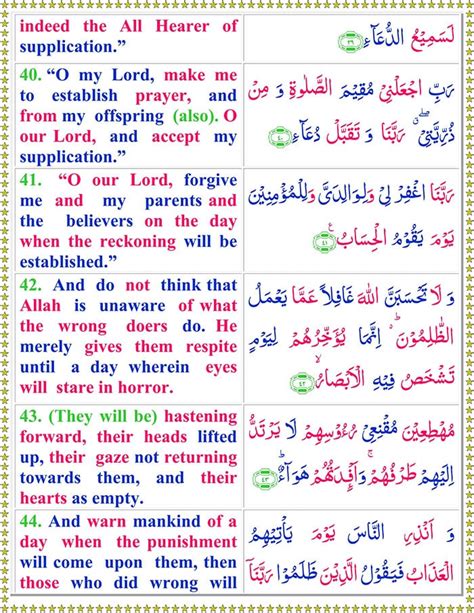 indeed the All Hearer of
supplication.”
لَسَمِيْعُ الدُّعَآءِ ۝٣٩
40. “O my Lord, make me
to establish prayer, and
from my offspring (also). O
our Lord, and accept my
supplication.”
رَبِّ اجْعَلْنِيْ مُقِيْمَ الصَّلٰوةِ وَ مِنْ
ذُرِّيَّتِيْ ۖ رَبَّنَا وَ تَقَبَّلْ دُعَآءِ ۝٤٠
41. “O our Lord, forgive
me and my parents and
the believers on the day
when the reckoning will be
established.”
رَبَّنَا اغْفِرْ لِيْ وَلِوَالِدَيَّ وَلِلْمُؤْمِنِيْنَ
يَوْمَ يَقُوْمُ الْحِسَابُ ۝٤١
42. And do not think that
Allah is unaware of what
the wrong doers do. He
merely gives them respite
until a day wherein eyes
will stare in horror.
وَ لَا تَحْسَبَنَّ اللّٰهَ غَافِلًا عَمَّا يَعْمَلُ
الظّٰلِمُوْنَ ؕ اِنَّمَا يُؤَخِّرُهُمْ لِيَوْمٍ
تَشْخَصُ فِيْهِ الْاَبْصَارُ ۝٤٢
43. (They will be) hastening
forward, their heads lifted
up, their gaze not returning
towards them, and their
hearts as empty.
مُهْطِعِيْنَ مُقْنِعِيْ رُءُوْسِهِمْ لَا يَرْتَدُّ
اِلَيْهِمْ طَرْفُهُمْ ۚ وَاَفْـِٕدَتُهُمْ هَوَآءٌ ۝٤٣
44. And warn mankind of a
day when the punishment
will come upon them, then
those who did wrong will
وَ اَنْذِرِ النَّاسَ يَوْمَ يَاْتِيْهِمُ
الْعَذَابُ فَيَقُوْلُ الَّذِيْنَ ظَلَمُوْا رَبَّنَاۤ